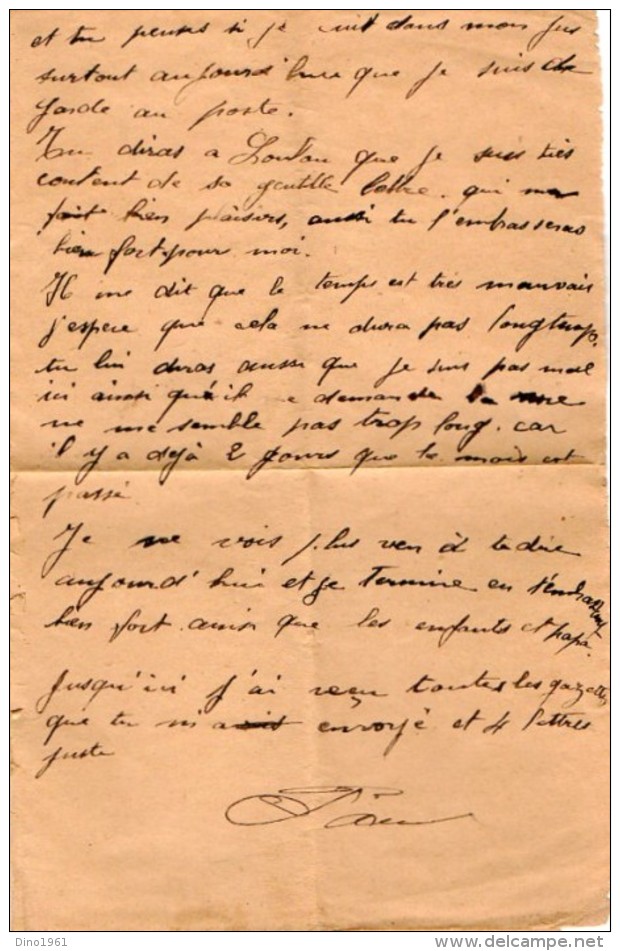 et tu penses si je cuit dans mon jus
surtout aujourd'hui que je suis de
garde au poste.
Tu diras a Loulou que je suis très
content de sa gentille lettre. qui me
fait bien plaisirs, aussi tu l'embrasseras
bien fort pour moi.
Il me dit que le temps est très mauvais
j'espère que cela ne dura pas longtemp.
tu lui diras aussi que je suis pas mal
ici ainsi qu'il demande
ne me semble pas trop long. car
il y a déjà 2 jours que le mois est
passé
Je ne vois plus rien à te dire
aujourd'hui et je termine en t'embrassant
bien fort ainsi que les enfants et papa.
Jusqu'ici j'ai reçu toutes les gazettes
que tu m'a envoyé et 4 lettres
juste
Dino1961
www.delcampe.net